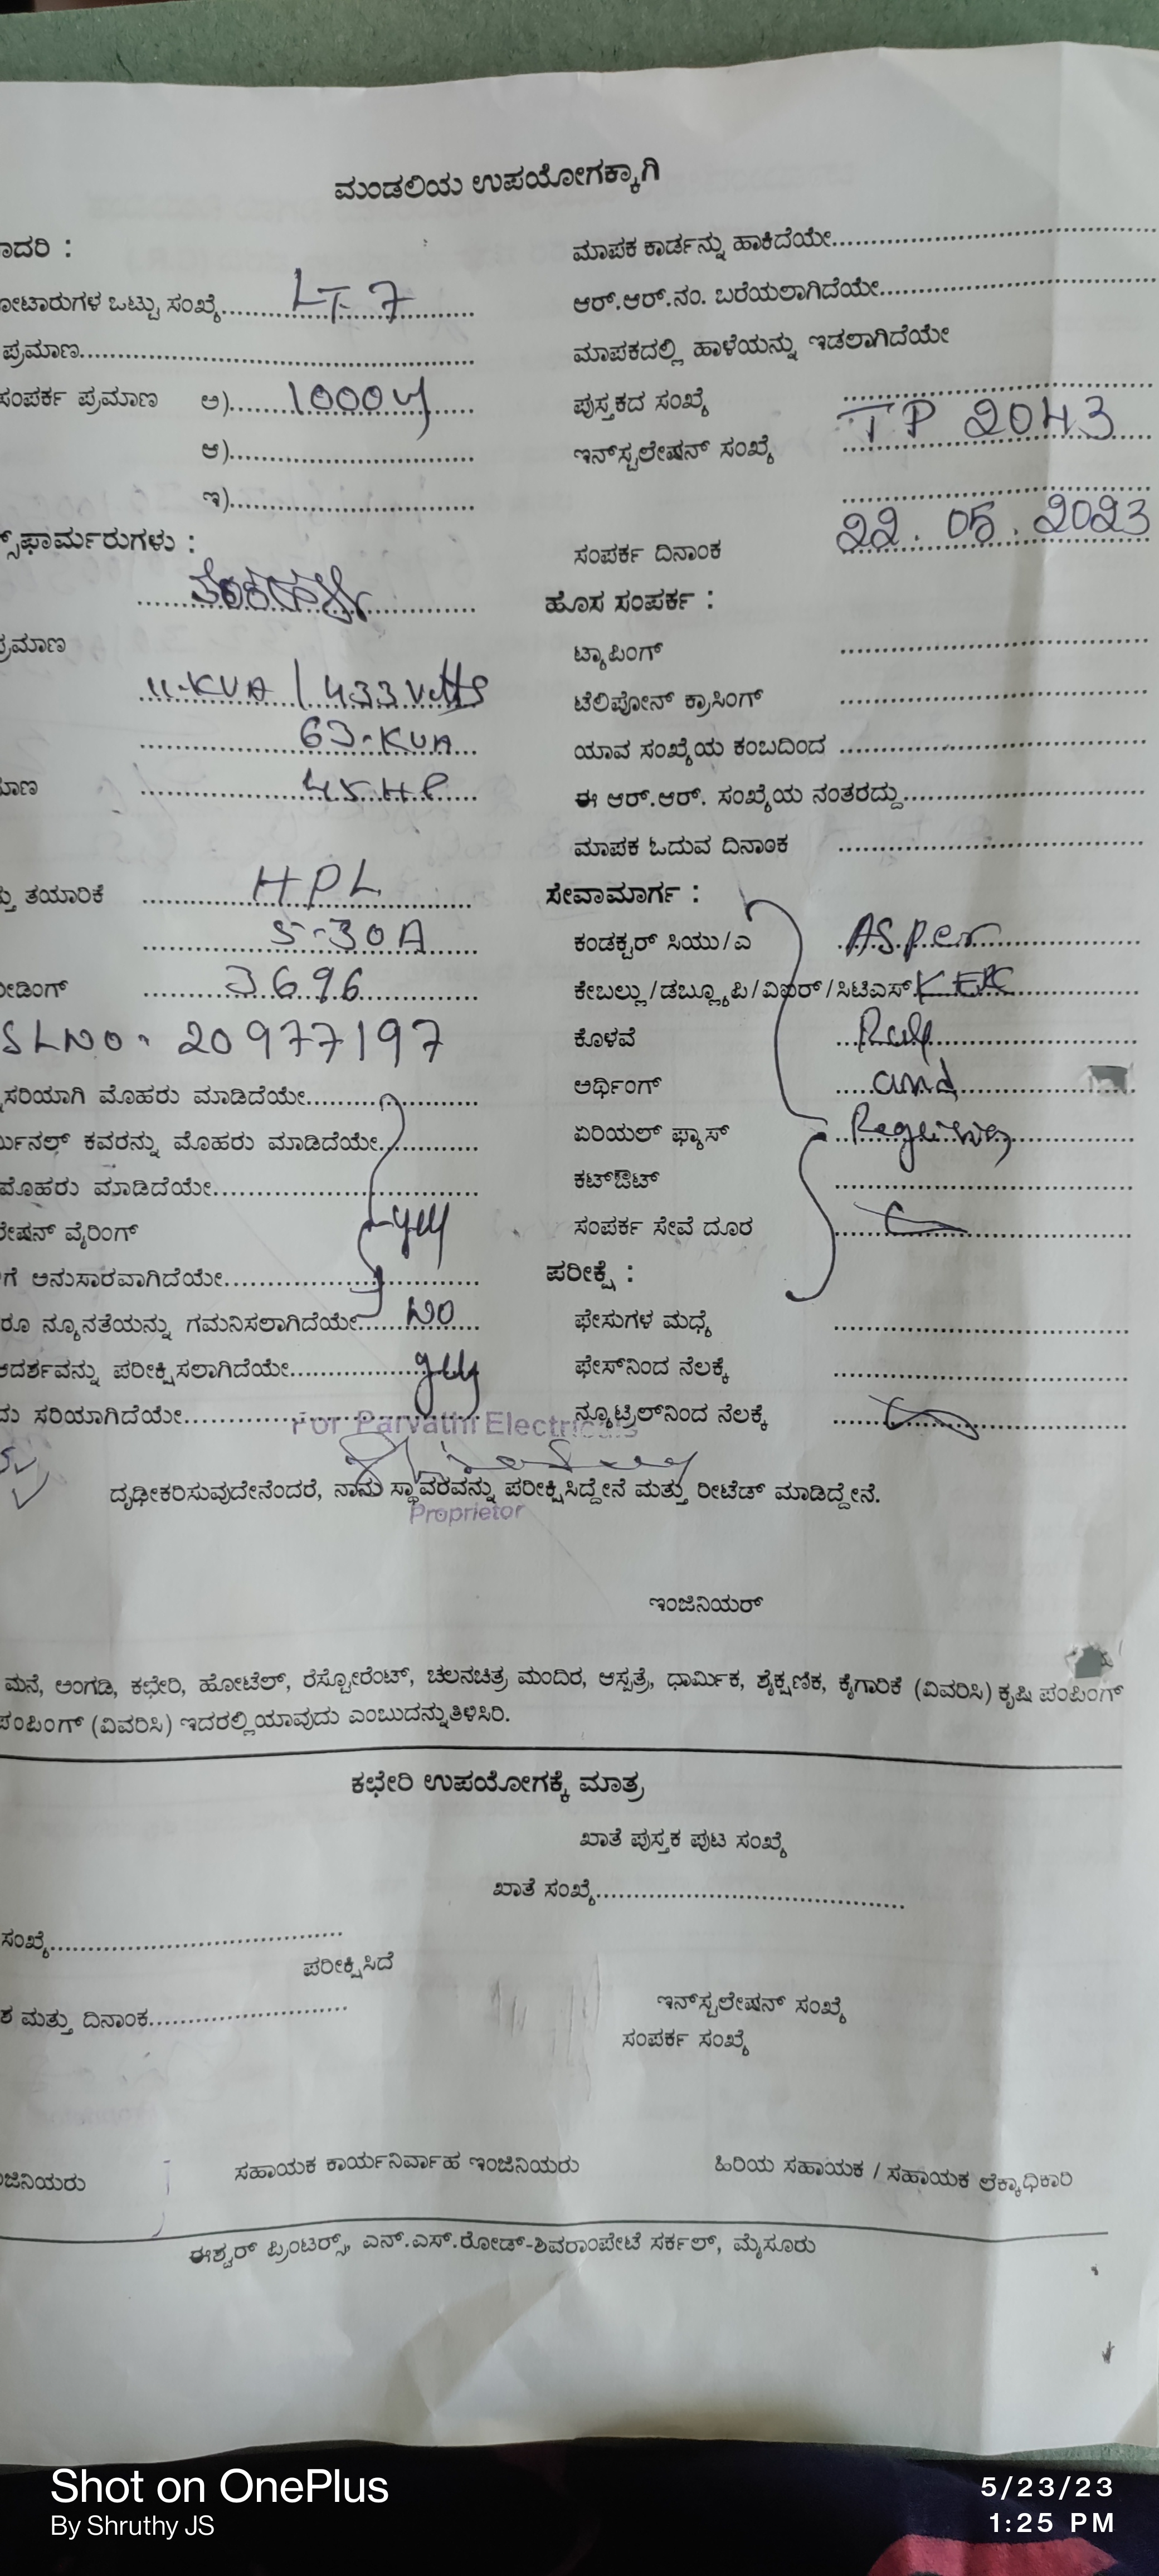 ಮಂಡಲಿಯ ಉಪಯೋಗಕ್ಕಾಗಿ
ಾದರಿ :
ೋಟಾರುಗಳ ಒಟ್ಟು ಸಂಖ್ಯೆ.......... LT-7
ಪ್ರಮಾಣ..........
ಸಂಪರ್ಕ ಪ್ರಮಾಣ ಅ).......... 1000 W
ಆ)..........
ಇ)..........
ಸ್‌ಫಾರ್ಮರುಗಳು :
ಪ್ರಮಾಣ
11-KVA / 433 Volts
63-KVA
ಮಾಣ 45 HP
ತು ತಯಾರಿಕೆ HPL
5-30A
ೀಡಿಂಗ್ 3696
SLNO. 20977197
ಸರಿಯಾಗಿ ಮೊಹರು ಮಾಡಿದೆಯೇ..........
ರ್ಮಿನಲ್ ಕವರನ್ನು ಮೊಹರು ಮಾಡಿದೆಯೇ..........
ಮೊಹರು ಮಾಡಿದೆಯೇ..........
ಲೇಷನ್ ವೈರಿಂಗ್ yes
ಗೆ ಅನುಸಾರವಾಗಿದೆಯೇ..........
ರೂ ನ್ಯೂನತೆಯನ್ನು ಗಮನಿಸಲಾಗಿದೆಯೇ.......... NO
ಆದರ್ಶವನ್ನು ಪರೀಕ್ಷಿಸಲಾಗಿದೆಯೇ.......... yes
ದು ಸರಿಯಾಗಿದೆಯೇ..........
ಮಾಪಕ ಕಾರ್ಡನ್ನು ಹಾಕಿದೆಯೇ..........
ಆರ್.ಆರ್.ನಂ. ಬರೆಯಲಾಗಿದೆಯೇ..........
ಮಾಪಕದಲ್ಲಿ ಹಾಳೆಯನ್ನು ಇಡಲಾಗಿದೆಯೇ
ಪುಸ್ತಕದ ಸಂಖ್ಯೆ ..........
ಇನ್‌ಸ್ಟಲೇಷನ್ ಸಂಖ್ಯೆ TP 2043
ಸಂಪರ್ಕ ದಿನಾಂಕ 22.05.2023
ಹೊಸ ಸಂಪರ್ಕ :
ಟ್ಯಾಪಿಂಗ್ ..........
ಟೆಲಿಪೋನ್ ಕ್ರಾಸಿಂಗ್ ..........
ಯಾವ ಸಂಖ್ಯೆಯ ಕಂಬದಿಂದ ..........
ಈ ಆರ್.ಆರ್. ಸಂಖ್ಯೆಯ ನಂತರದ್ದು..........
ಮಾಪಕ ಓದುವ ದಿನಾಂಕ ..........
ಸೇವಾಮಾರ್ಗ :
ಕಂಡಕ್ಟರ್ ಸಿಯು/ಎ AS per
ಕೇಬಲ್ಲು/ಡಬ್ಲ್ಯೂಪಿ/ವಿಐರ್/ಸಿಟಿಎಸ್
ಕೊಳವೆ
ಅರ್ಥಿಂಗ್ and
ಏರಿಯಲ್ ಫ್ಯೂಸ್
ಕಟ್‌ಔಟ್ ..........
ಸಂಪರ್ಕ ಸೇವೆ ದೂರ ..........
ಪರೀಕ್ಷೆ :
ಫೇಸುಗಳ ಮಧ್ಯೆ ..........
ಫೇಸ್‌ನಿಂದ ನೆಲಕ್ಕೆ ..........
ನ್ಯೂಟ್ರಲ್‌ನಿಂದ ನೆಲಕ್ಕೆ ..........
For Parvathi Electricals
ದೃಢೀಕರಿಸುವುದೇನೆಂದರೆ, ನಾನು ಸ್ಥಾವರವನ್ನು ಪರೀಕ್ಷಿಸಿದ್ದೇನೆ ಮತ್ತು ರೀಟೆಡ್ ಮಾಡಿದ್ದೇನೆ.
Proprietor
ಇಂಜಿನಿಯರ್
ಮನೆ, ಅಂಗಡಿ, ಕಛೇರಿ, ಹೋಟೆಲ್, ರೆಸ್ಟೋರೆಂಟ್, ಚಲನಚಿತ್ರ ಮಂದಿರ, ಆಸ್ಪತ್ರೆ, ಧಾರ್ಮಿಕ, ಶೈಕ್ಷಣಿಕ, ಕೈಗಾರಿಕೆ (ವಿವರಿಸಿ) ಕೃಷಿ ಪಂಪಿಂಗ್
ಪಂಪಿಂಗ್ (ವಿವರಿಸಿ) ಇದರಲ್ಲಿ ಯಾವುದು ಎಂಬುದನ್ನು ತಿಳಿಸಿರಿ.
ಕಛೇರಿ ಉಪಯೋಗಕ್ಕೆ ಮಾತ್ರ
ಖಾತೆ ಪುಸ್ತಕ ಪುಟ ಸಂಖ್ಯೆ
ಖಾತೆ ಸಂಖ್ಯೆ..........
ಸಂಖ್ಯೆ..........
ಪರೀಕ್ಷಿಸಿದೆ
ಶ ಮತ್ತು ದಿನಾಂಕ..........
ಇನ್‌ಸ್ಟಲೇಷನ್ ಸಂಖ್ಯೆ
ಸಂಪರ್ಕ ಸಂಖ್ಯೆ
ಜಿನಿಯರು ಸಹಾಯಕ ಕಾರ್ಯನಿರ್ವಾಹ ಇಂಜಿನಿಯರು ಹಿರಿಯ ಸಹಾಯಕ / ಸಹಾಯಕ ಲೆಕ್ಕಾಧಿಕಾರಿ
ಈಶ್ವರ್ ಪ್ರಿಂಟರ್ಸ್, ಎನ್.ಎಸ್.ರೋಡ್-ಶಿವರಾಂಪೇಟೆ ಸರ್ಕಲ್, ಮೈಸೂರು
Shot on OnePlus
By Shruthy JS
5/23/23
1:25 PM